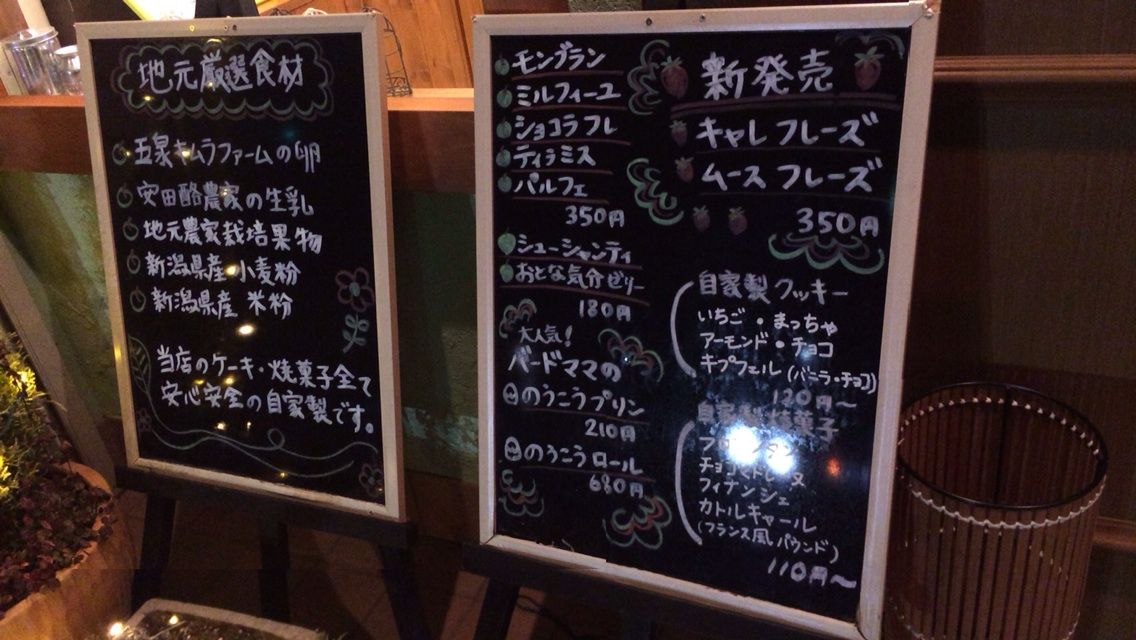 地元厳選食材
五泉キムラファームの卵
安田酪農家の生乳
地元農家栽培果物
新潟県産 小麦粉
新潟県産 米粉
当店のケーキ・焼菓子全て
安心安全の自家製です。
モンブラン
ミルフィーユ
ショコラフレ
ティラミス
パルフェ
350円
シューシャンティ
おとな気分ゼリー
180円
大人気!
バードママの
のうこうプリン
210円
のうこうロール
680円
新発売
キャレフレーズ
ムースフレーズ
350円
自家製クッキー
いちご・まっちゃ
アーモンド・チョコ
キプフェル(バニラ・チョコ)
120円〜
自家製焼菓子
チョコマドレーヌ
フィナンシェ
カトルキャール
(フランス風パウンド)
110円〜